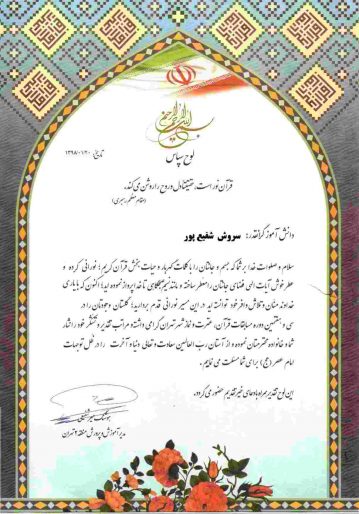 بسم الله الرحمن الرحیم
لوح سپاس
تاریخ: ۱۳۹۸/۰۱/۳۰
قرآن نور است، حقیقتا دل و روح را روشن می کند.
(مقام معظم رهبری)
دانش آموز گرانقدر: سروش شفیع پور
سلام و صلوات خدا بر شما که جسم و جانتان را با کلمات گهربار و حیات بخش قرآن کریم؛ نورانی کرده و
عطر خوش آیات الهی فضای جانتان را معطر ساخته و مانند نسیم صبحگاهی تا خدا پرواز نموده اید؛ اکنون که با یاری
خداوند منان و تلاش وافر خود توانسته اید در این مسیر نورانی قدم بردارید؛ گلستان وجودتان را در
سی و هفتمین دوره مسابقات قرآن، عترت و نماز شهر تهران گرامی داشته و مراتب تقدیر و تشکر خود را نثار
شما و خانواده محترمتان نموده و از آستان رب العالمین سعادت و تعالی دنیا و آخرت را در ظل توجهات
امام عصر (عج) برای شما مسئلت می نماییم.
این لوح تقدیر به همراه دعای خیر تقدیم حضور می گردد.
مدیر آموزش و پرورش منطقه ۲ تهران